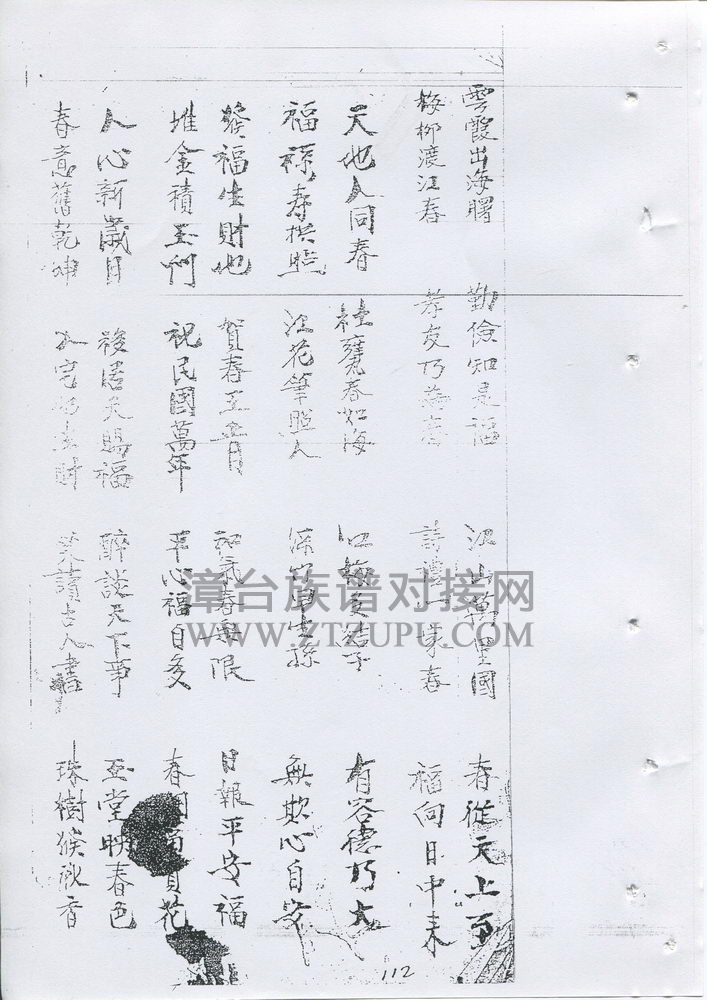 雲霞出海曙
梅柳渡江春
天地人同春
福祿寿拱照
發福生財地
堆金積玉門
人心新歲月
春意舊乾坤
勤儉知是福
孝友乃
春如海
江花筆照人
賀春王正月
祝民國萬年
天賜福
江山萬里國
詩禮一家春
和氣春無限
平心福自多
醉談天下事
笑讀古人書
春從天上至
福向日中来
有容德乃大
無欺心自安
日報平安福
春 花
玉堂映春色
珠樹 秋香
漳台族谱对接网
WWW.ZTZUPU.COM
112